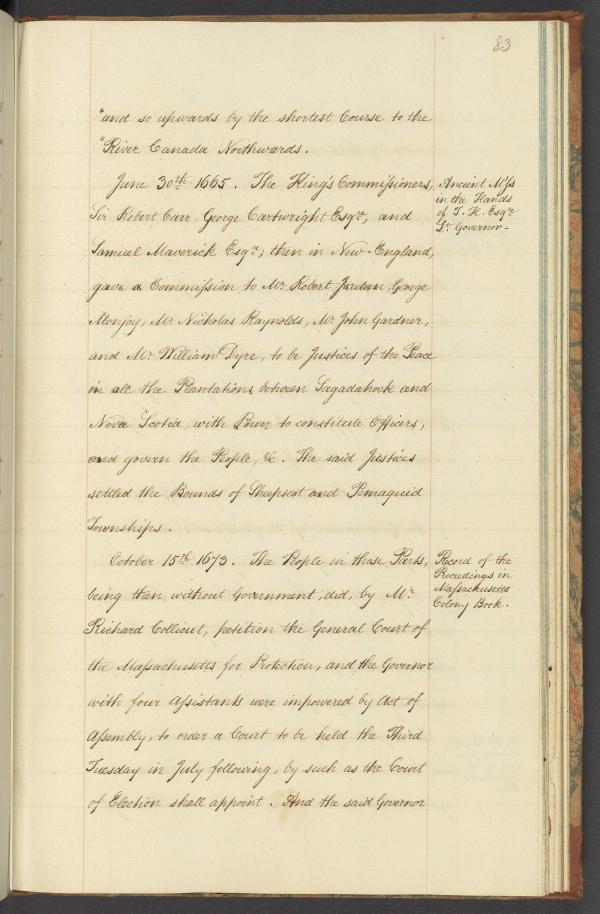 83
"and so upwards by the shortest Course to the
"River Canada Northwards.
June 30th 1665. The King's Commissioners,
Sir Robert Carr, George Cartwright Esqr, and
Samuel Maverick Esqr; then in New-England,
gave a Commission to Mr Robert Jordan, George
Monjoy, Mr Nicholas Raynolds, Mr John Gardner,
and Mr William Dyre, to be Justices of the Peace
in all the Plantations between Sagadahock and
Nova Scotia, with Power to constitute Officers,
and govern the People, &c. The said Justices
settled the Bounds of Sheepscot and Pemaquid
Townships.
October 15th 1673. The People in those Parts,
being then without Government, did, by Mr
Richard Collicut, petition the General Court of
the Massachusetts for Protection, and the Governor
with four Assistants were impowered by Act of
Assembly, to order a Court to be held the Third
Tuesday in July following, by such as the Court
of Election shall appoint. And the said Governor
Ancient Mss
in the Hands
of T. H. Esqr
Lt Governor-
Record of the
Proceedings in
Massachusetts
Colony Book.